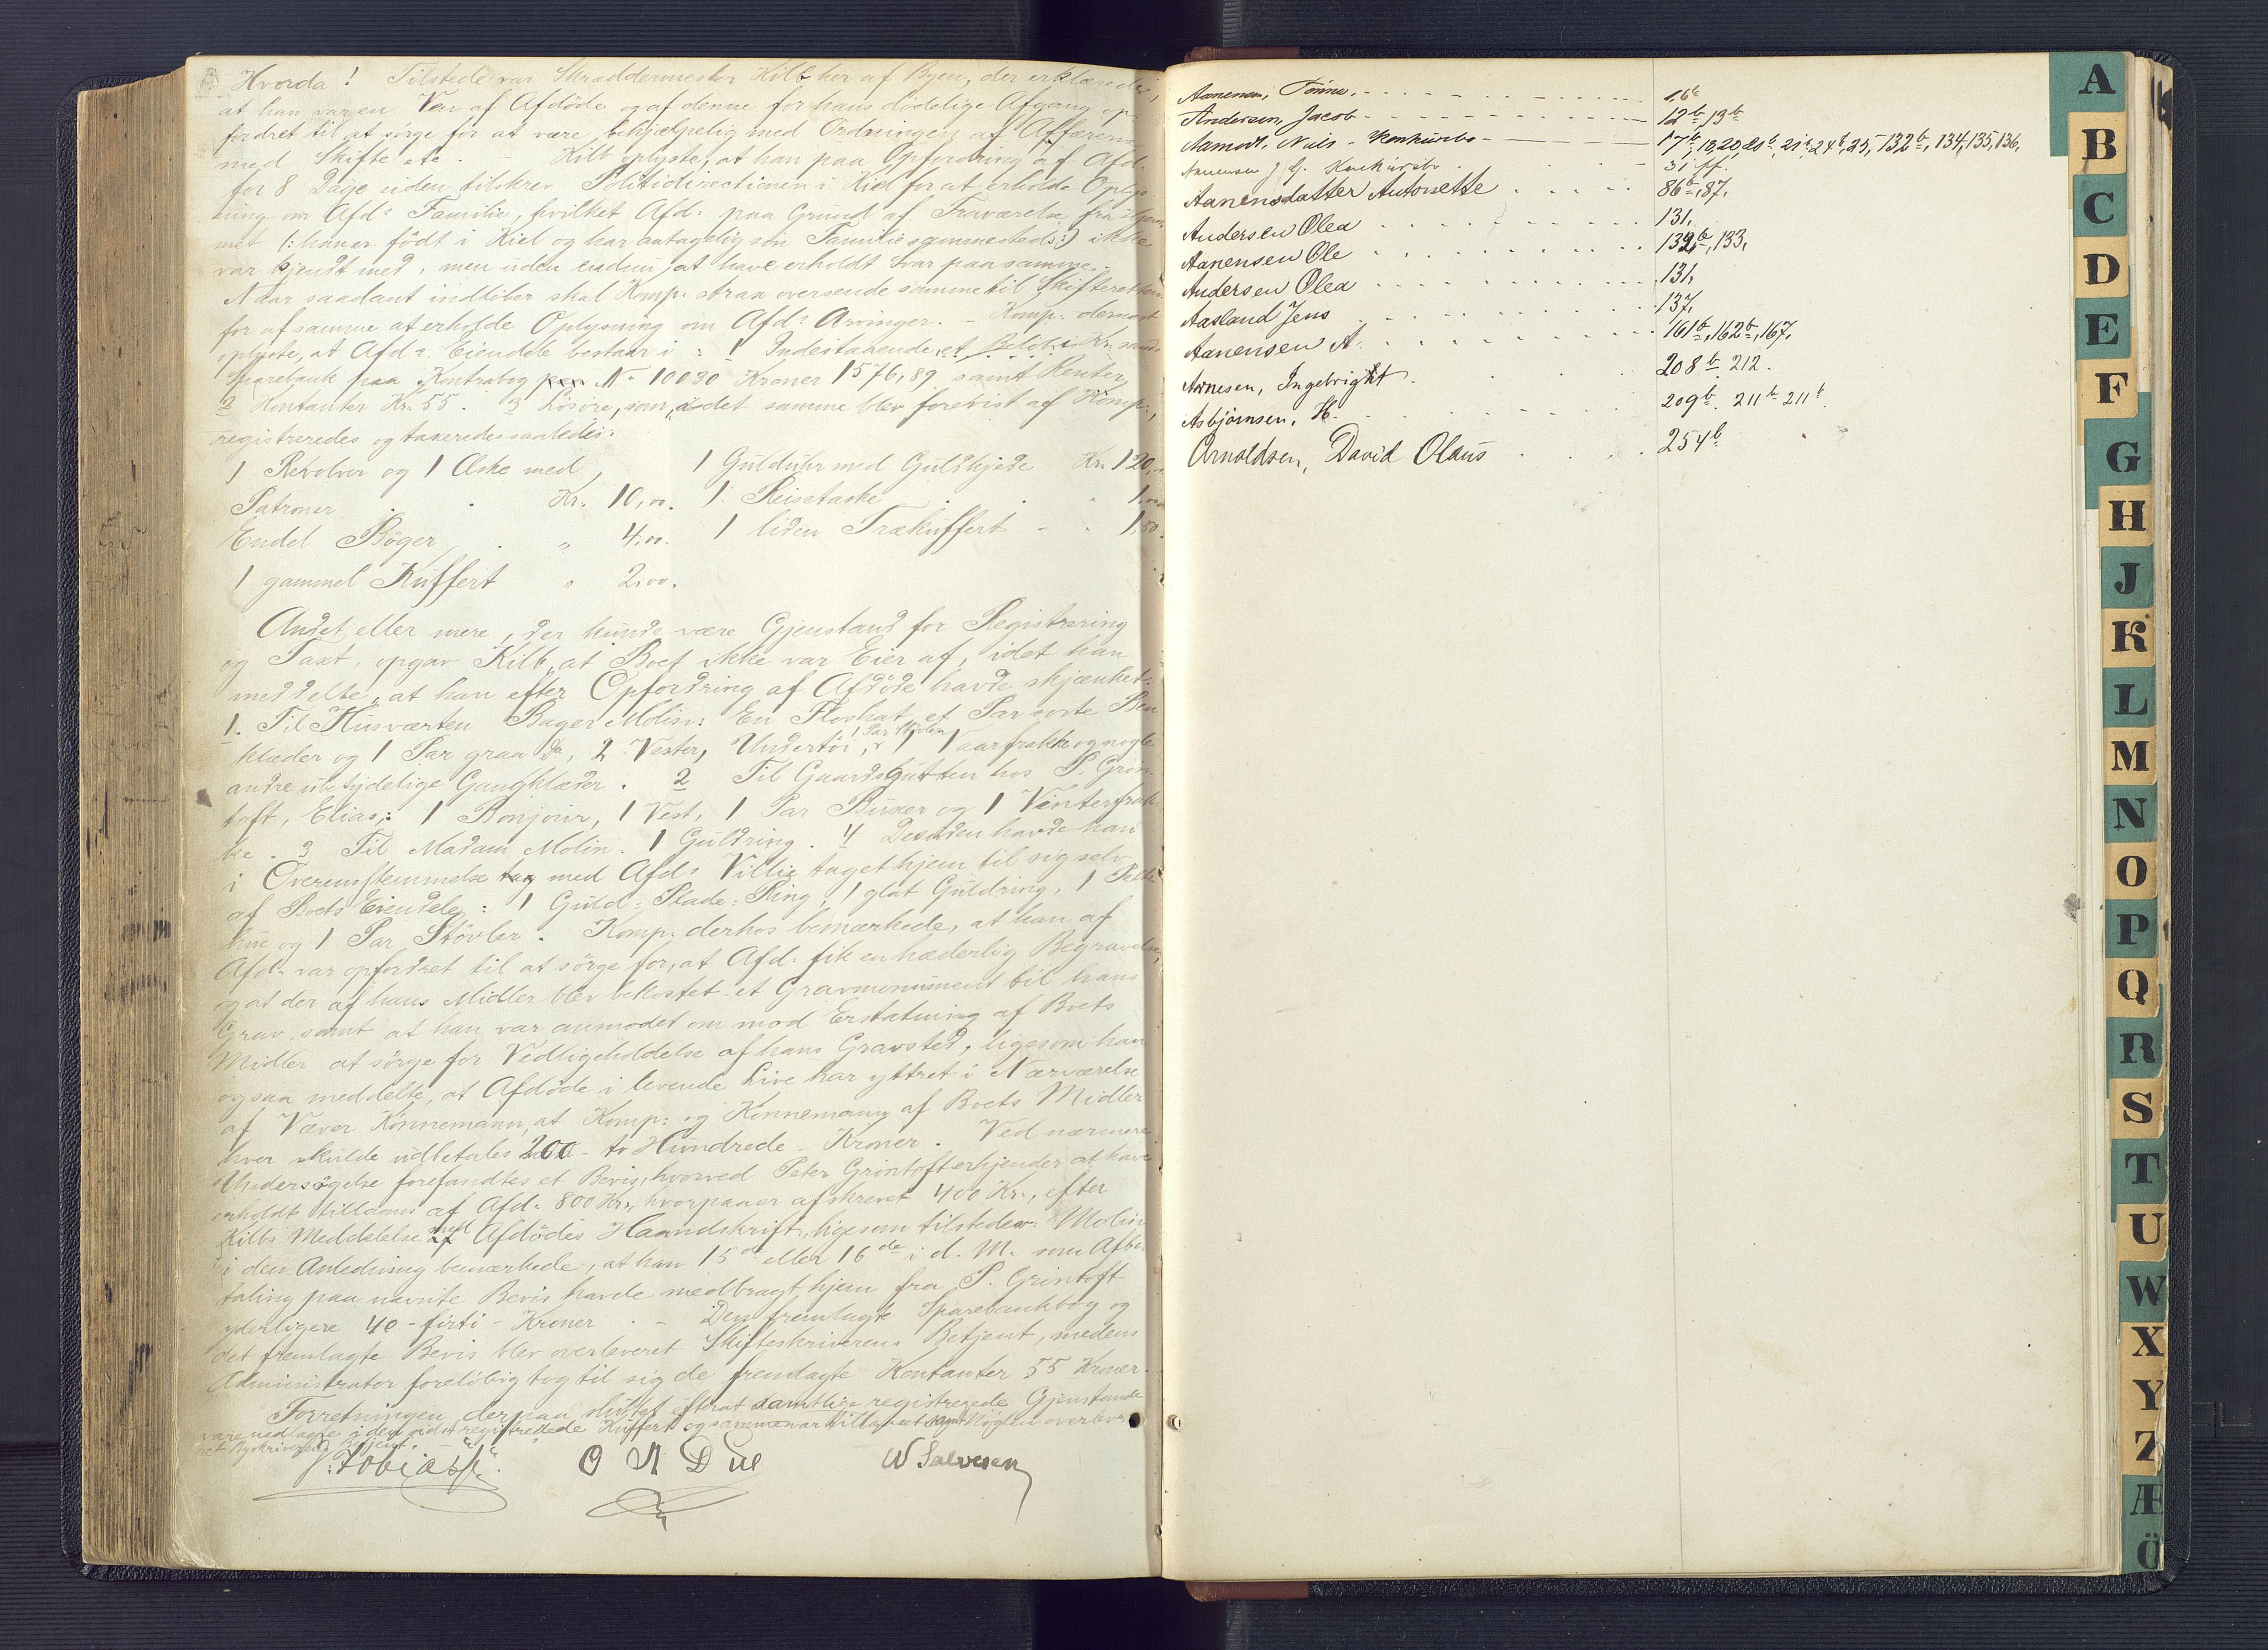 Hvorda! Tilstede var Skræddermester Kilb her af Byen, der erklærede,
at han var en Ven af Afdöde og af denne för hans dödelige Afgang op-
fordret til at sörge for at være behjælpelig med Ordningen af Affærerne
med Skifte etc. - Kilb oplyste, at han paa Opfordring af Afd.
for 8 Dage siden tilskrev Politidirectionen i Kiel for at erholde Oplys-
ning om Afd: Familie, hvilket Afd: paa Grund af Fraværelse fra Hjem-
met (: han er födt i Kiel og har antagelig sin Familie sammesteds :) ikke
var kjendt med, men uden endnu at have erholdt Svar paa samme.
Naar saadant indlöber skal Komp. strax oversende samme til Skifteretten
for af samme at erholde Oplysning om Afd: Arvinger. - Komp. dernæst
oplyste, at Afd: Eiendele bestaar i: 1 Indestaaende et Belöb i Kr.sands
Sparebank paa Kontrabog No 10030 Kroner 1576,89 samt Renter,
2 Kontanter Kr. 55. 3 Lösöre, som, idet samme blev forevist af Komp.,
registreredes og taxeredes saaledes:
1 Revolver og 1 Æske med 1 Gulduhr med Guldkjede Kr. 120,
Patroner . . Kr. 10,00. 1 Reisetaske . . " 1.00
Endel Böger . " 4,00. 1 liden Trækuffert - " 1,50.
1 gammel Kuffert " 2,00.
Andet eller mere, der kunde være Gjenstand for Registrering
og Taxt, opgav Kilb, at Boet ikke var Eier af, idet han
meddelte, at han efter Opfordring af Afdöde havde skjænket:
1. Til Husværten Bager Molin: En Flovhat, et Par sorte Ben-
klæder og 1 Par graa do, 2 Vester, Undertöi, 1 Par Stövler, 1 Vaarfrakke og nogle
andre ubetydelige Gangklæder. 2 Til Gaardsgutten hos P. Grön-
toft, Elias: 1 Bonjour, 1 Vest, 1 Par Buxer og 1 Vinterfrak-
ke. 3 Til Madam Molin: 1 Guldring. 4 Desuden havde han
i Overensstemmelse med Afd: Villie taget hjem til sig selv
af Boets Eiendele: 1 Guld-Plade-Ring, 1 glat Guldring, 1 Pelts-
hue og 1 Par Stövler. Komp. derhos bemærkede, at han af
Afd: var opfordret til at sörge for, at Afd: fik en hæderlig Begravelse,
og at der af hans Midler blev bekostet et Gravmonument til hans
Grav, samt at han var anmodet om mod Erstatning af Boets
Midler at sörge for Vedligeholdelse af hans Gravsted, ligesom han
ogsaa meddelte, at Afdöde i levende Live har yttret i Nærværelse
af Væver Könnemann, at Komp: og Könnemann af Boets Midler
hver skulde udbetales 200 - to Hundrede - Kroner. Ved nærmere
Undersögelse forefandtes et Bevis, hvorved Peter Gröntoft erkjender at have
erholdt tillaans af Afd: 800 Kr., hvorpaa er afskrevet 400 Kr., efter
Kilbs Meddelelse med Afdödes Haandskrift, ligesom tilstedev: Molin
i den Anledning bemærkede, at han 15de eller 16de i d. M. som Afbe-
taling paa nævnte Bevis havde medbragt hjem fra P. Gröntoft
yderligere 40 - firti - Kroner. - Den fremlagte Sparebankbog og
det fremlagte Bevis blev overleveret Skifteskriverens Betjent, medens
Administrator forelöbig tog til sig de fremlagte Kontanter 55 Kroner.
Forretningen derpaa sluttet efterat samtlige registrerede Gjenstande
vare nedlagte i den sidst registrerede Kuffert og samme var tillaaset samt Nöglen overleve-
ret Byskriverens Betjent.
J: Tobiass: O N Due W Salvesen
Aanensen, Tönne. 1,6b
Andersen, Jacob 12b, 13b
Aamodt, Niels - Konkursbo 17b, 18, 20, 20b, 21b, 24b, 25, 132b, 134, 135, 136,
Aanensen J G. Konkursbo 31 ff.
Aanensdatter Antonette 86b, 87,
Andersen Olea 131,
Aanensen Ole 132b, 133,
Andersen Olea 131,
Aasland Jens 137,
Aanensen A. 161b, 162b, 167,
Arnesen, Ingebrigt 208b. 212.
Asbjörnsen, H. 209b. 211b 211b.
Arnoldsen, David Olaus 254b
A
B
C
D
E
F
G
H
J
K
L
M
N
O
P
Q
R
S
T
U
W
X
Y
Z
Æ
Ö